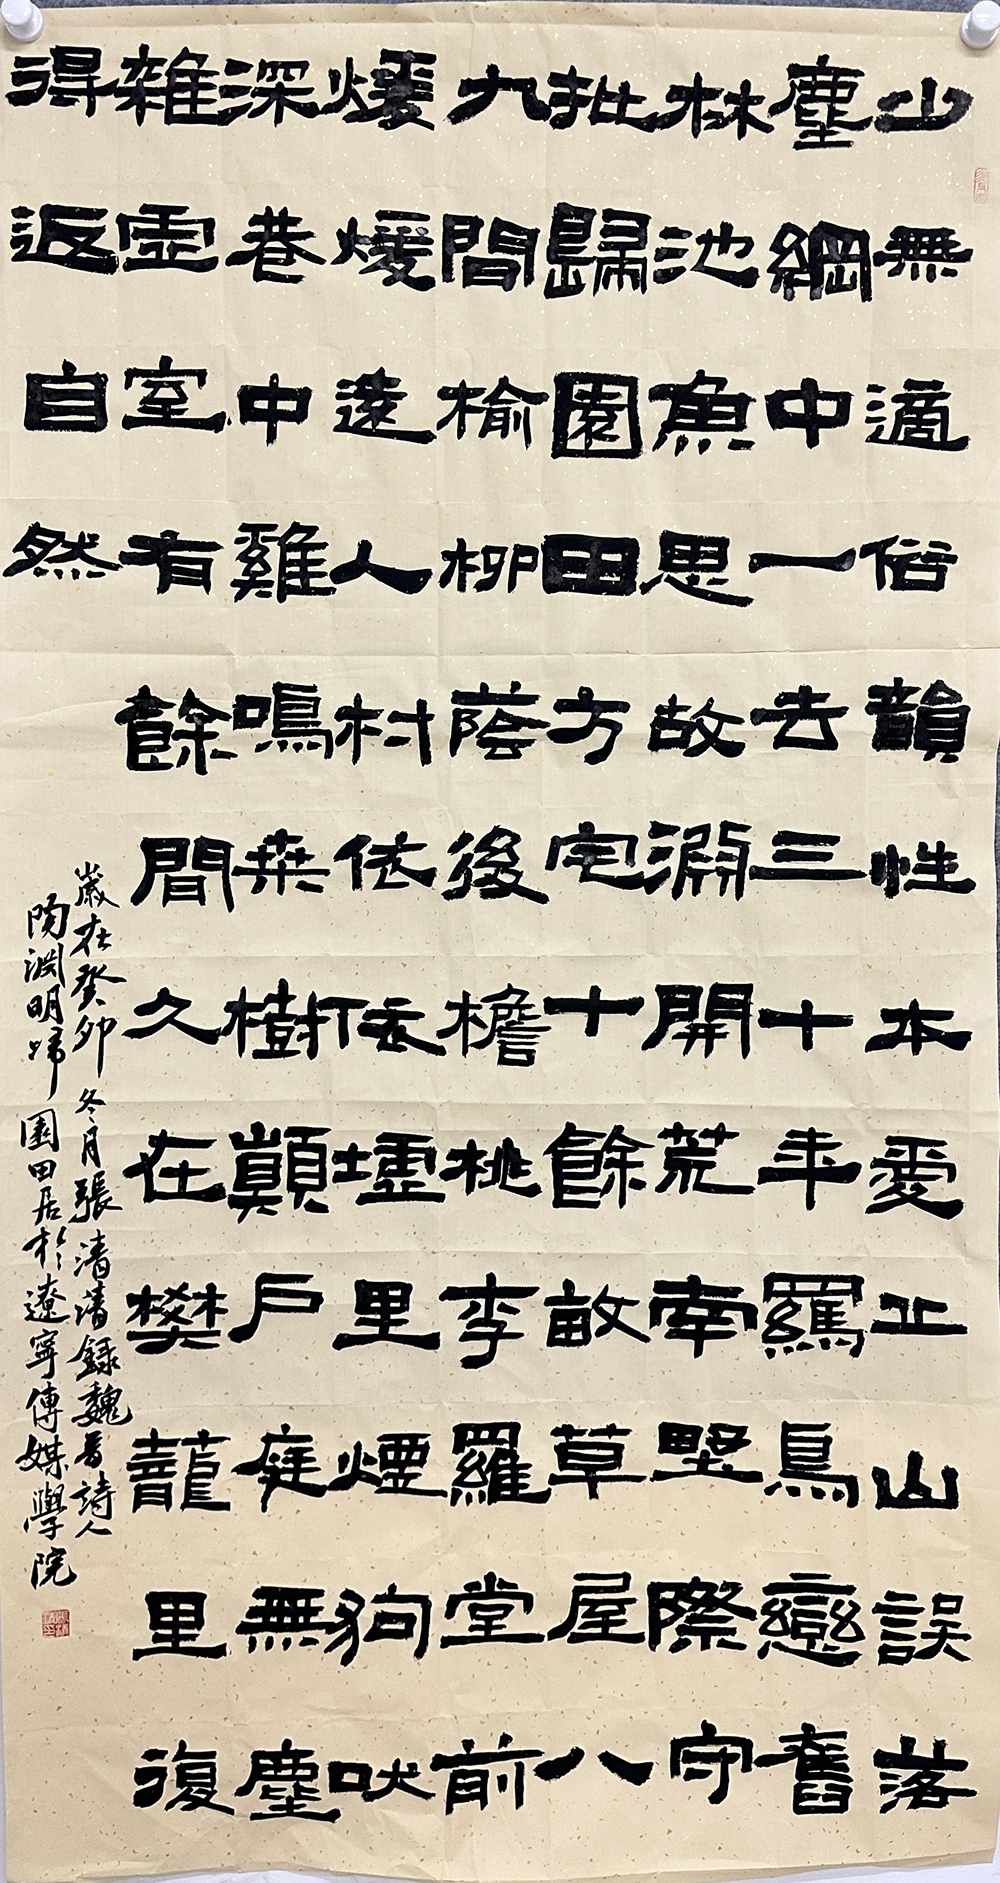 少無適俗韻性本愛丘山誤落
塵網中一去三十年羈鳥戀舊
林池魚思故淵開荒南野際守
拙歸園田方宅十餘畝草屋八
九間榆柳蔭後檐桃李羅堂前
煖煖遠人村依依墟里煙狗吠
深巷中雞鳴桑樹顛戶庭無塵
雜虛室有餘間久在樊籠里復
得返自然
歲在癸卯冬月張清清錄魏晉詩人
陶淵明歸園田居於遼寧傳媒學院